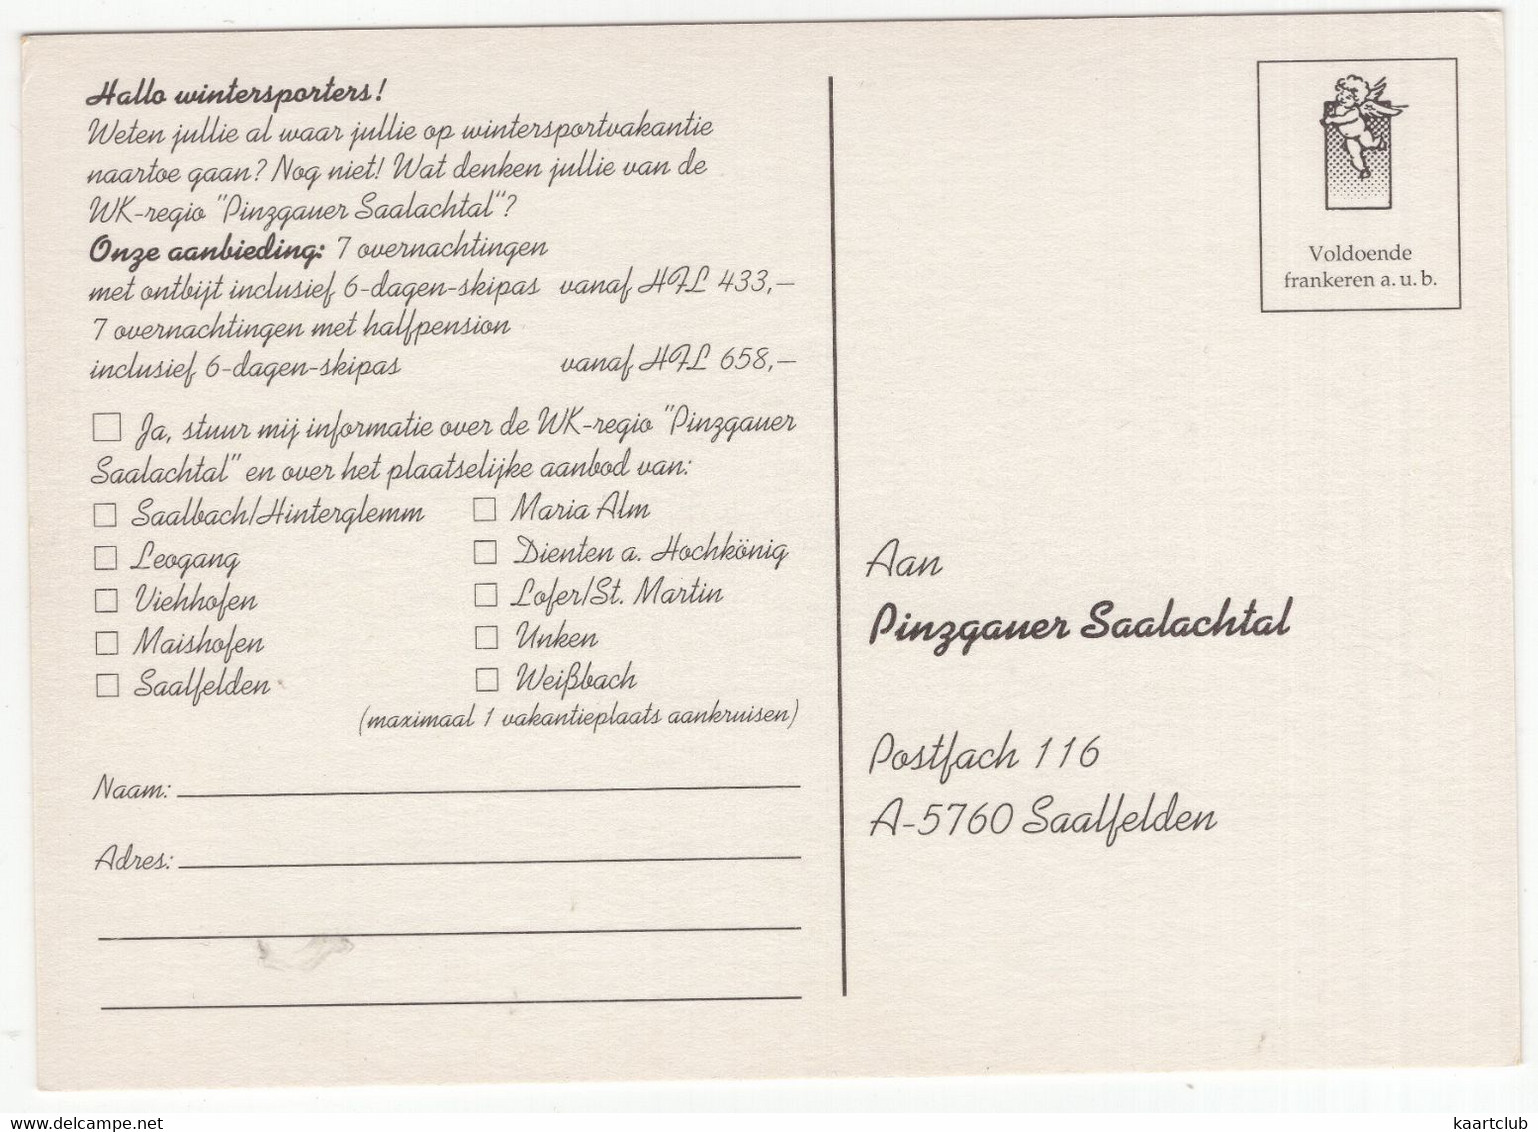 Hallo wintersporters!
Weten jullie al waar jullie op wintersportvakantie
naartoe gaan? Nog niet! Wat denken jullie van de
WK-regio "Pinzgauer Saalachtal"?
Onze aanbieding: 7 overnachtingen
met ontbijt inclusief 6-dagen-skipas vanaf HFL 433,—
7 overnachtingen met halfpension
inclusief 6-dagen-skipas vanaf HFL 658,—
Ja, stuur mij informatie over de WK-regio "Pinzgauer
Saalachtal" en over het plaatselijke aanbod van:
Saalbach/Hinterglemm
Leogang
Viehhofen
Maishofen
Saalfelden
Maria Alm
Dienten a. Hochkönig
Lofer/St. Martin
Unken
Weißbach
(maximaal 1 vakantieplaats aankruisen)
Naam:
Adres:
Voldoende
frankeren a. u. b.
Aan
Pinzgauer Saalachtal
Postfach 116
A-5760 Saalfelden
www.delcampe.net
kaartclub